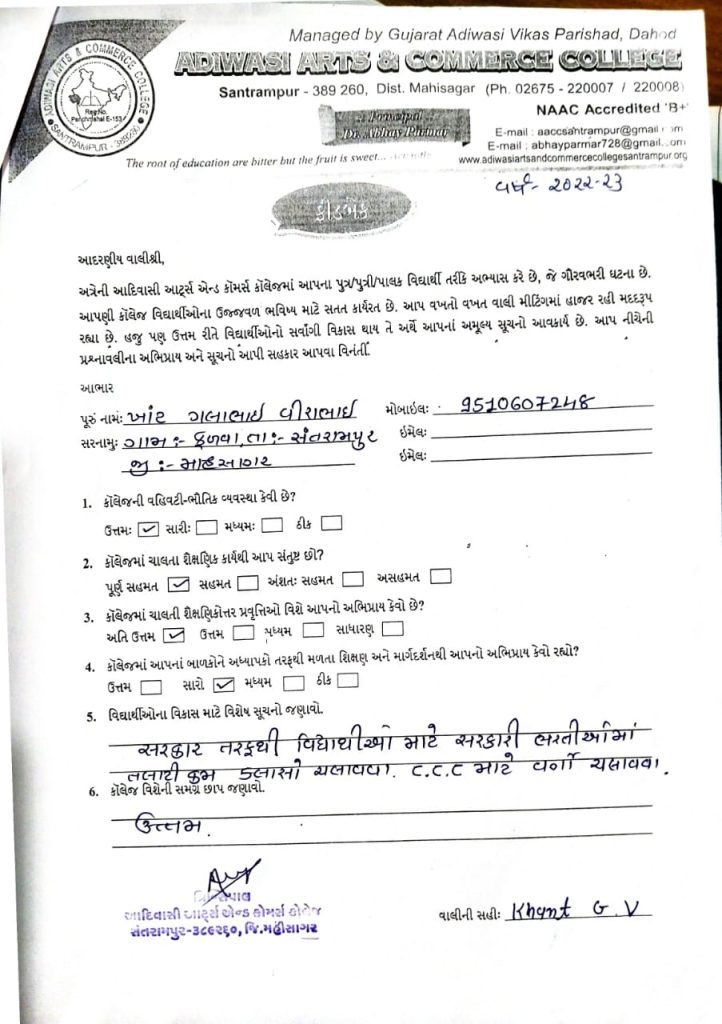 Managed by Gujarat Adiwasi Vikas Parishad, Dahod
ADIWASI ARTS & COMMERCE COLLEGE
Santrampur - 389 260, Dist. Mahisagar (Ph. 02675 - 220007 / 220008)
ADIWASI ARTS & COMMERCE COLLEGE
Reg.No.
Panchmahal E-153
SANTRAMPUR - 389260
Principal
Dr. Abhay Parmar
NAAC Accredited 'B+'
E-mail : aaccsantrampur@gmail
E-mail : abhayparmar728@gmail
www.adiwasiartsandcommercecollegesantrampur.org
The root of education are bitter but the fruit is sweet...
વર્ષ - ૨૦૨૨-૨૩
ફીડબેક
આદરણીય વાલીશ્રી,
અત્રેની આદિવાસી આર્ટ્સ એન્ડ કૉમર્સ કૉલેજમાં આપના પુત્ર/પુત્રી/પાલક વિદ્યાર્થી તરીકે અભ્યાસ કરે છે, જે ગૌરવભરી ઘટના છે.
આપણી કૉલેજ વિદ્યાર્થીઓના ઉજ્જવળ ભવિષ્ય માટે સતત કાર્યરત છે. આપ વખતો વખત વાલી મીટિંગમાં હાજર રહી મદદરૂપ
રહ્યા છે. હજુ પણ ઉત્તમ રીતે વિદ્યાર્થીઓનો સર્વાંગી વિકાસ થાય તે અર્થે આપનાં અમૂલ્ય સૂચનો આવકાર્ય છે. આપ નીચેની
પ્રશ્નાવલીના અભિપ્રાય અને સૂચનો આપી સહકાર આપવા વિનંતી.
આભાર
પૂરું નામઃ ખાંટ ગલાભાઈ વીરાભાઈ મોબાઈલઃ 9510607248
સરનામુઃ ગામ :- કળવા, તા :- સંતરામપુર ઇમેલઃ
જી :- મહિસાગર ઇમેલઃ
1. કૉલેજની વહિવટી-ભૌતિક વ્યવસ્થા કેવી છે?
ઉત્તમઃ ✓ સારીઃ મધ્યમઃ ઠીક
2. કૉલેજમાં ચાલતા શૈક્ષણિક કાર્યથી આપ સંતુષ્ટ છો?
પૂર્ણ સહમત ✓ સહમત અંશતઃ સહમત અસહમત
3. કૉલેજમાં ચાલતી શૈક્ષણિકોત્તર પ્રવૃત્તિઓ વિશે આપનો અભિપ્રાય કેવો છે?
અતિ ઉત્તમ ✓ ઉત્તમ મધ્યમ સાધારણ
4. કૉલેજમાં આપનાં બાળકોને અધ્યાપકો તરફથી મળતા શિક્ષણ અને માર્ગદર્શનથી આપનો અભિપ્રાય કેવો રહ્યો?
ઉત્તમ સારો ✓ મધ્યમ ઠીક
5. વિદ્યાર્થીઓના વિકાસ માટે વિશેષ સૂચનો જણાવો.
સરકાર તરફથી વિદ્યાર્થીઓ માટે સરકારી ભરતીઓમાં
તલાટી કમ કલાસો ચલાવવા. C.C.C માટે વર્ગો ચલાવવા.
6. કૉલેજ વિશેની સમગ્ર છાપ જણાવો.
ઉત્તમ.
પ્રિન્સિપાલ
આદિવાસી આર્ટ્સ એન્ડ કોમર્સ કોલેજ
સંતરામપુર-૩૮૯૨૬૦, જિ.મહીસાગર
વાલીની સહીઃ Khant G.V